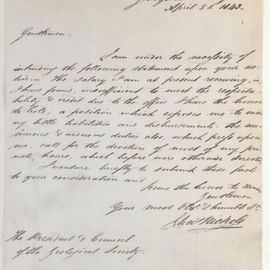 April 5th 1843.
Gentlemen,
I am under the necessity of
intruding the following statement upon your no-
tice — The salary I am at present receiving, is
I have found, insufficient to meet the responsi-
bility & credit due to the office I have the honor
to hold, a position which exposes me to ma-
ny little liabilities and disbursements, the nu-
merous & arduous duties also, which press upon
me, call for the devotion of most of my pri-
vate, hours, which before were otherwise directed
I venture briefly to submit these facts
to your consideration and
have the honor to
Gentlemen
Your most Obt. humble St.
The President & Council
of the Geological Society.